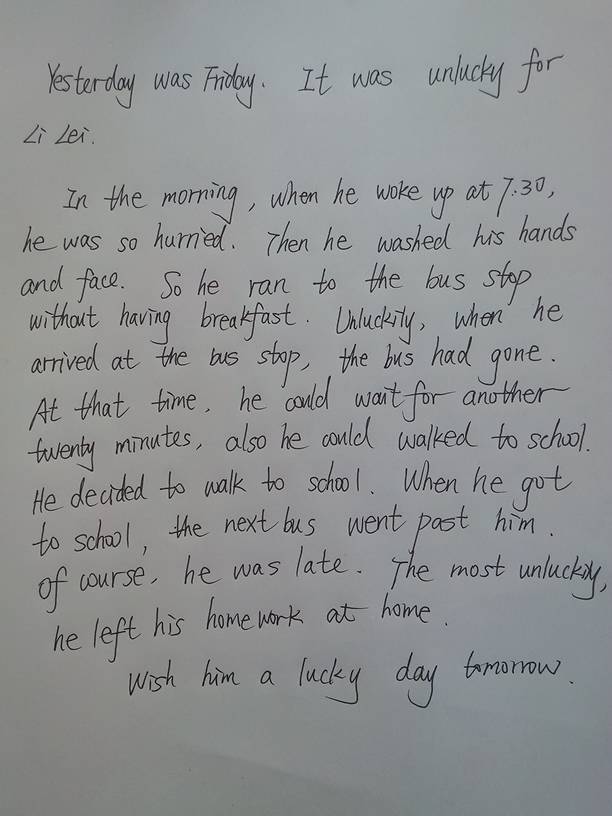 Yesterday was Friday. It was unlucky for
Li Lei.
In the morning, when he woke up at 7:30,
he was so hurried. Then he washed his hands
and face. So he ran to the bus stop
without having breakfast. Unluckily, when he
arrived at the bus stop, the bus had gone.
At that time, he could wait for another
twenty minutes, also he could walked to school.
He decided to walk to school. When he got
to school, the next bus went past him.
Of course, he was late. The most unluckily,
he left his homework at home.
Wish him a lucky day tomorrow.